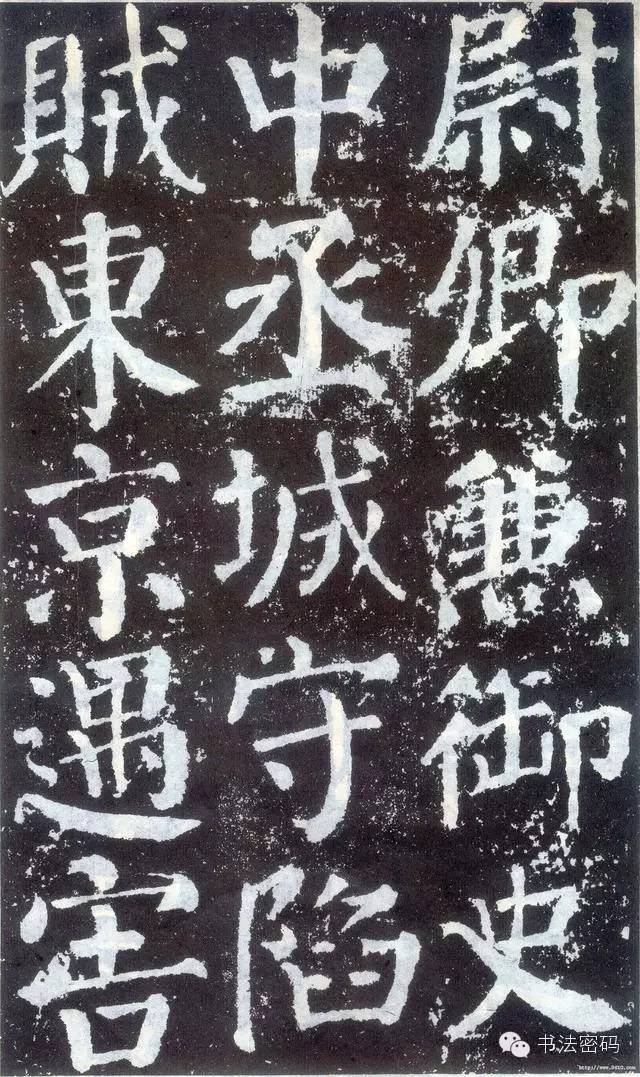 尉卿兼御史
中丞城守陷
賊東京遇害
书法密码
http://www.9610.com